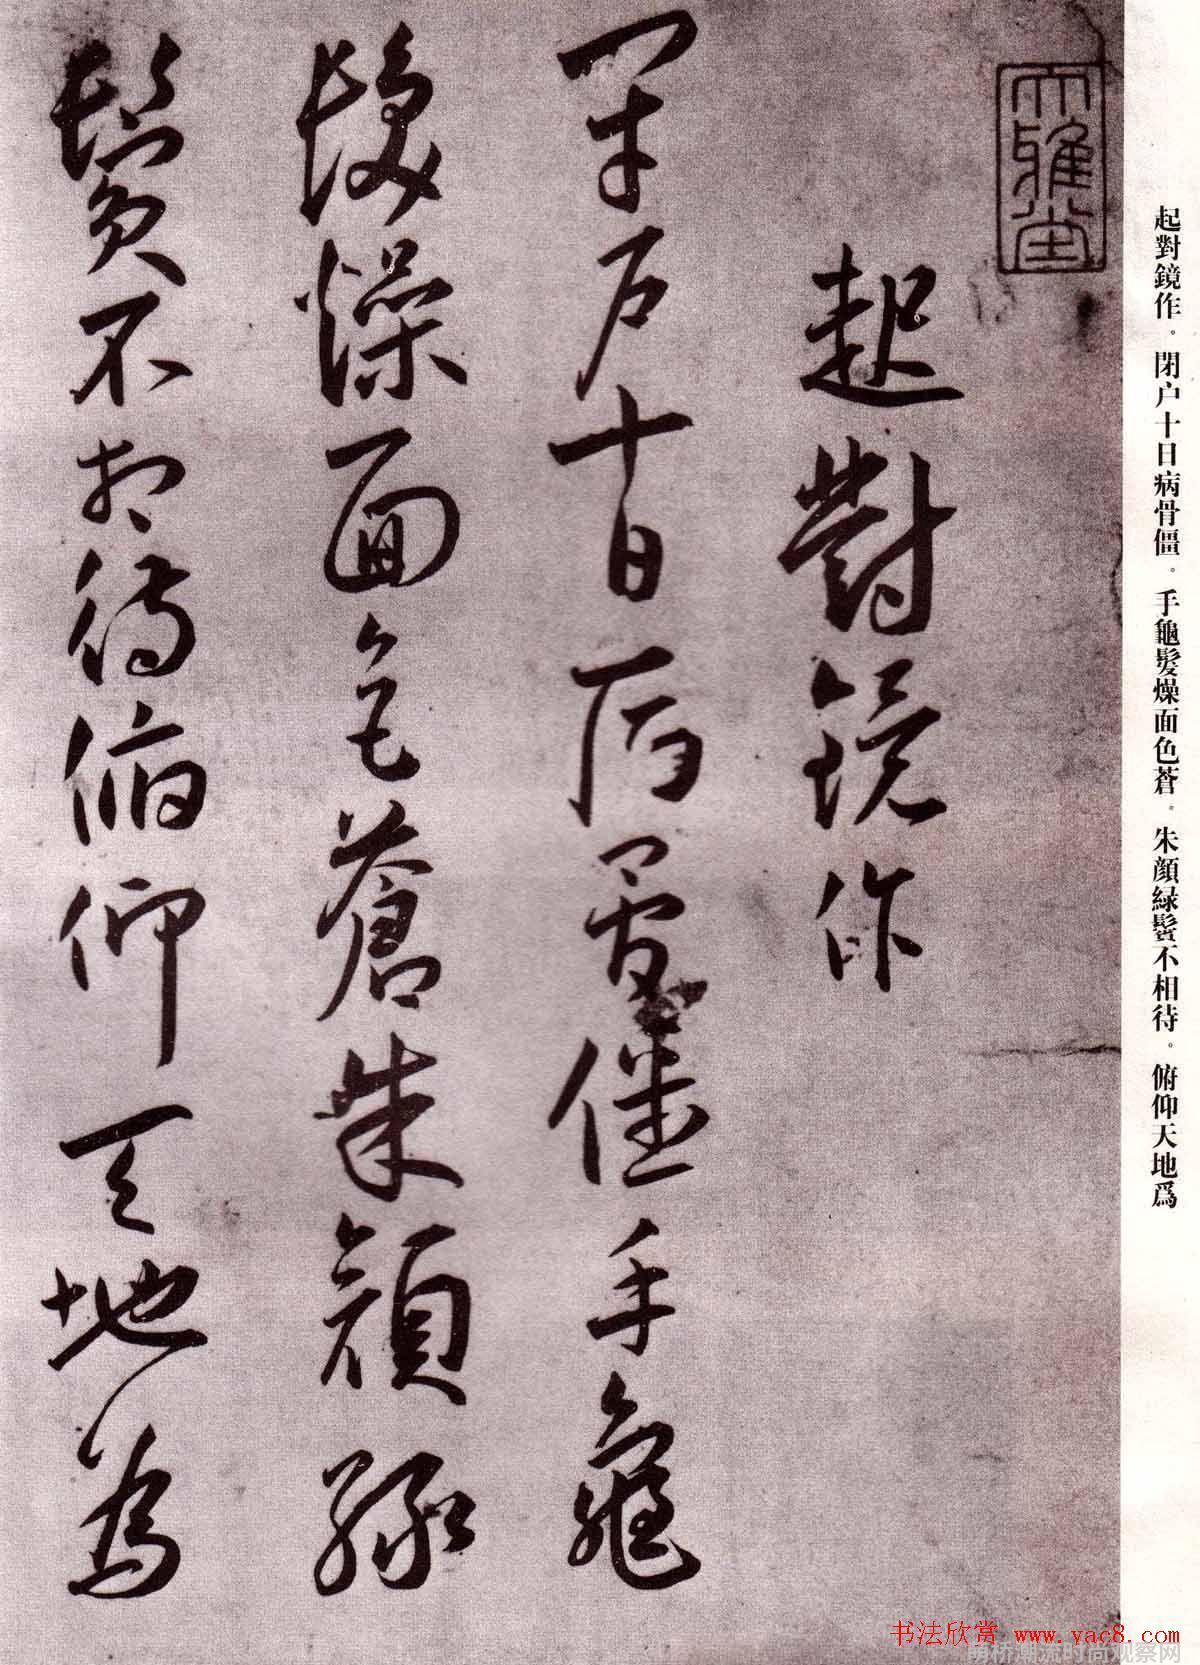 起對鏡作。閉户十日病骨僵。手龜髮燥面色蒼。朱顔緑鬢不相待。俯仰天地爲
大雅堂
起對鏡作
閉户十日病骨僵手龜
髮燥面色蒼朱顔緑
鬢不相待俯仰天地為
书法欣赏 www.yac8.com
南桥潮流时尚观察网